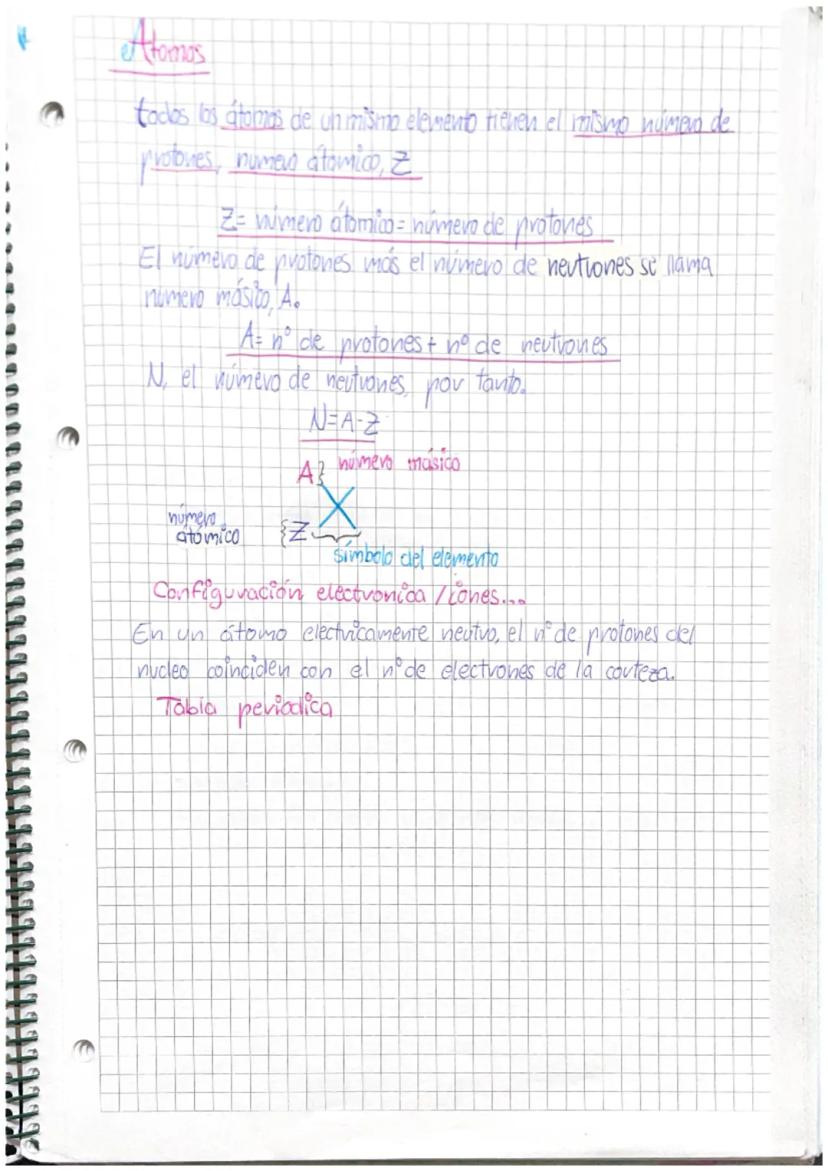 Atomos
todos los átomos de un mismo elemento tienen el mismo número de
protones, numero átomico, Z
Z= número átomico= número de protones
El número de protones más el número de neutrones se llama
numero másico, A.
A= nº de protones + nº de neutrones
N, el número de neutrones, por tanto.
N=A-Z
A} número másico
X
número
atómico {Z
símbolo del elemento
Configuración electronica / iones...
En un átomo electricamente neutro, el nº de protones del
nucleo coinciden con el nº de electrones de la corteza.
Tabla periodica